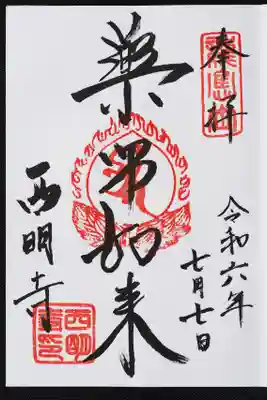 奉拝
令和六年
七月七日
薬师如来
西明寺